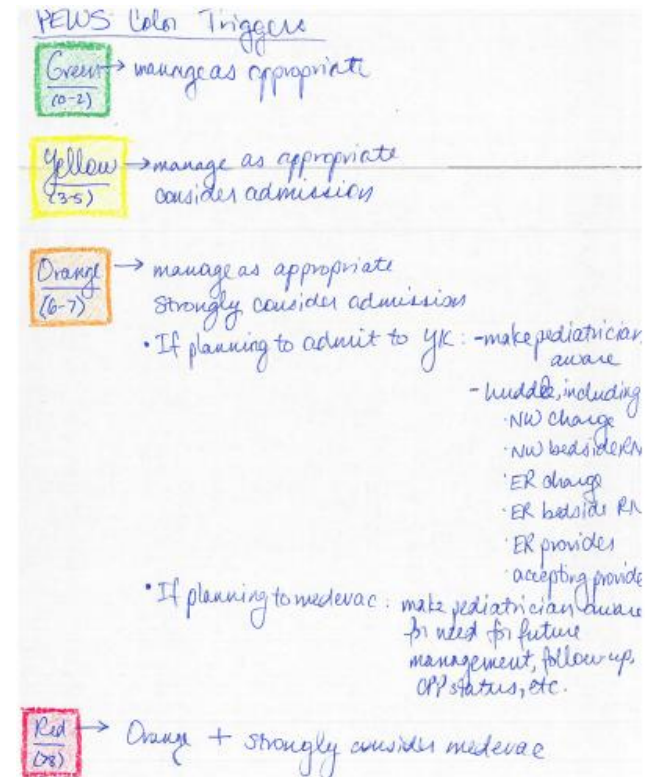 PEWS Color Triggers
Green → manage as appropriate
(0-2)
Yellow → manage as appropriate
(3-5) consider admission
Orange → manage as appropriate
(6-7) Strongly consider admission
• If planning to admit to YK: - make pediatrician
aware
- huddle, including
· NW Charge
· NW bedside RN
· ER charge
· ER bedside RN
· ER provider
· accepting provide
• If planning to medevac: make pediatrician aware
for need for future
management, follow-up,
CPP status, etc.
Red → Orange + strongly consider medevac
(>8)